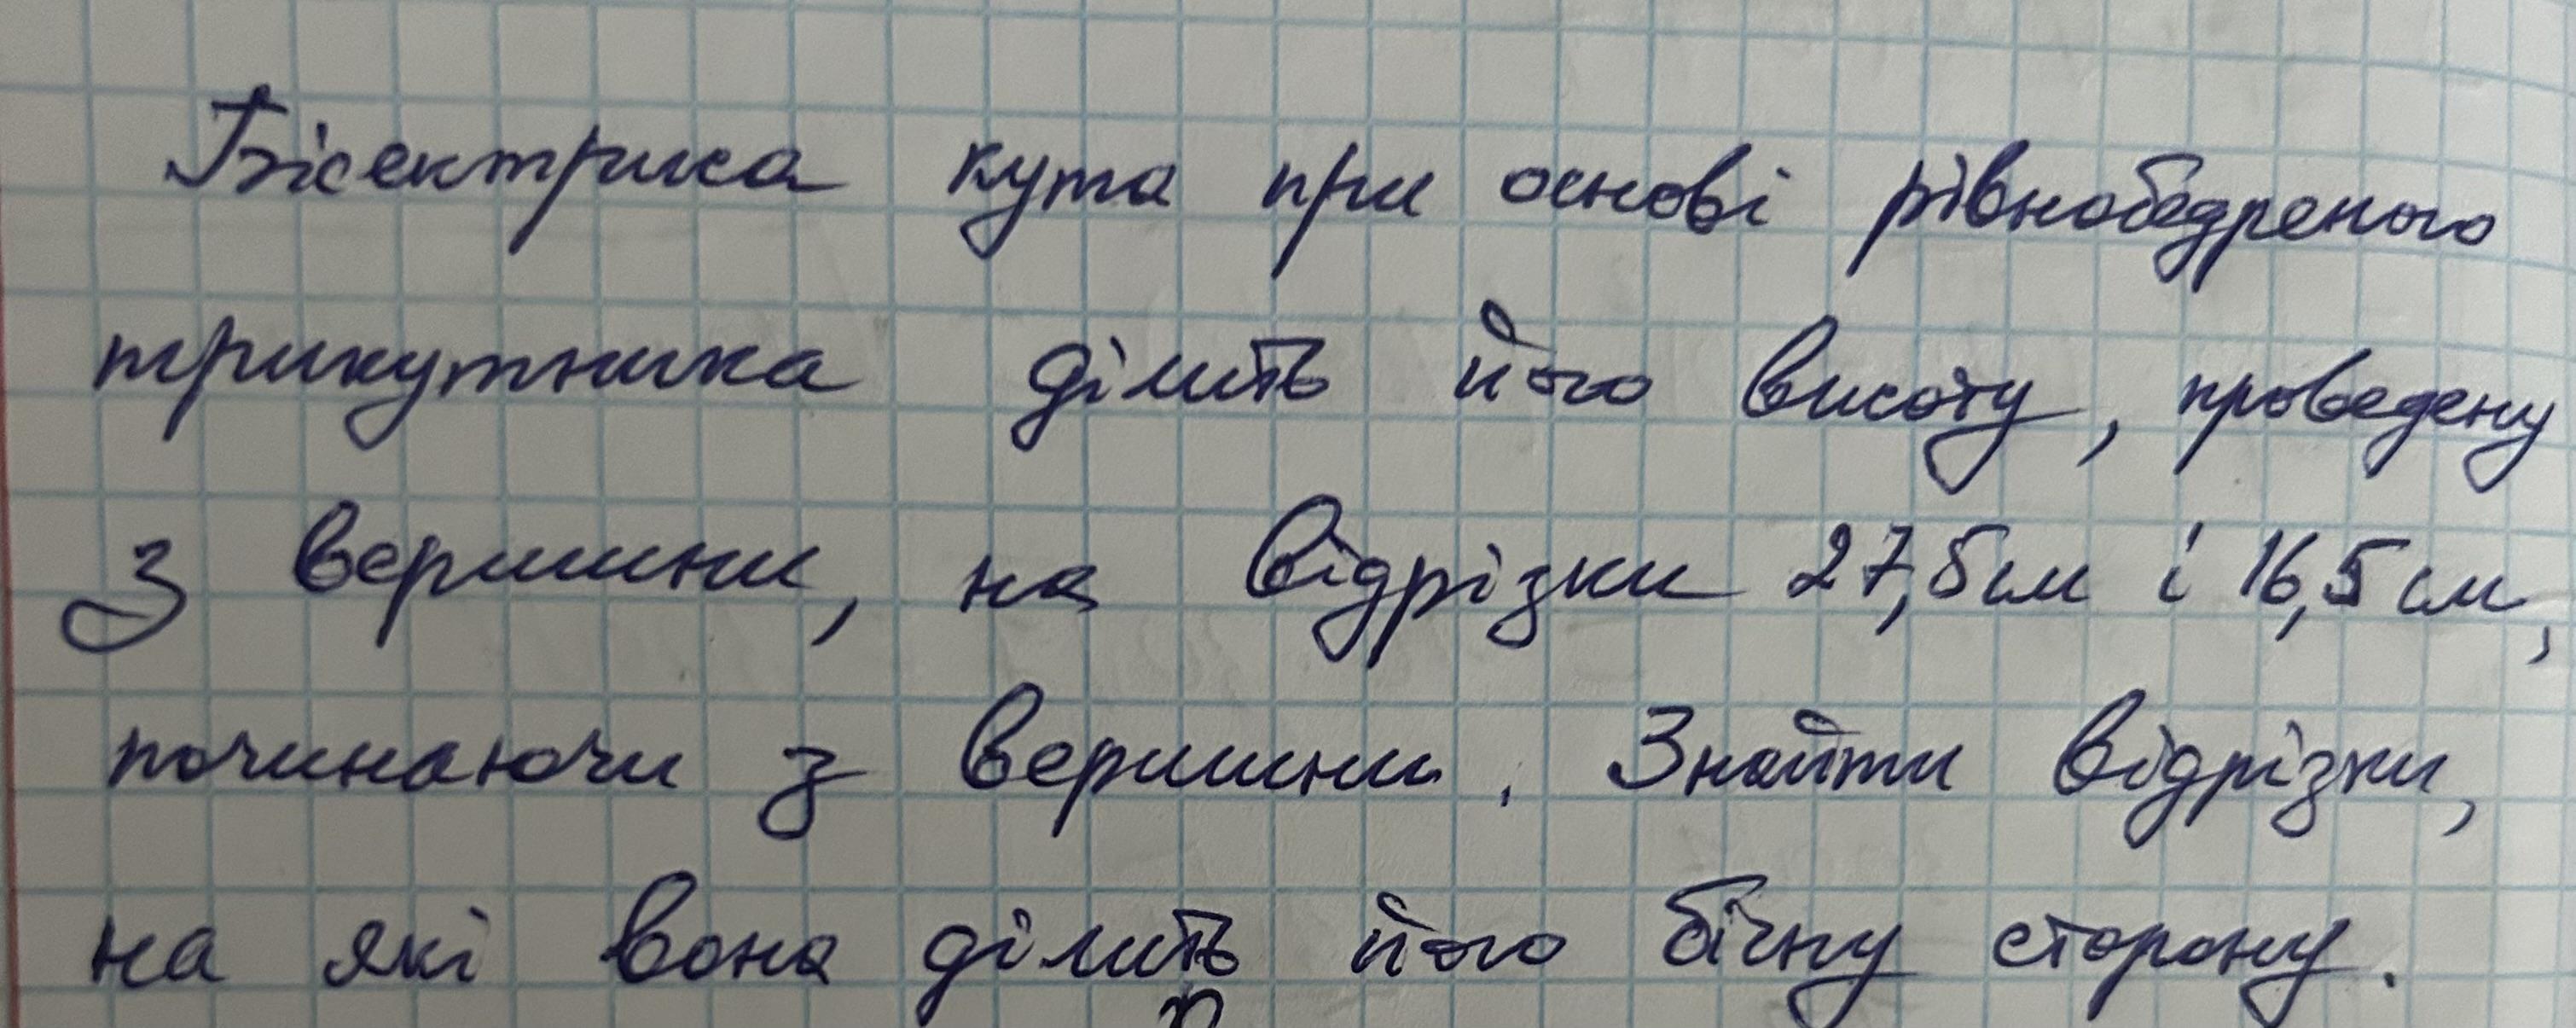 Бісектриса кута при основі рівнобедреного
трикутника ділить його висоту, проведену
з вершини, на відрізки 27,5 см і 16,5 см,
починаючи з вершини. Знайти відрізки,
на які вона ділить його бічну сторону.